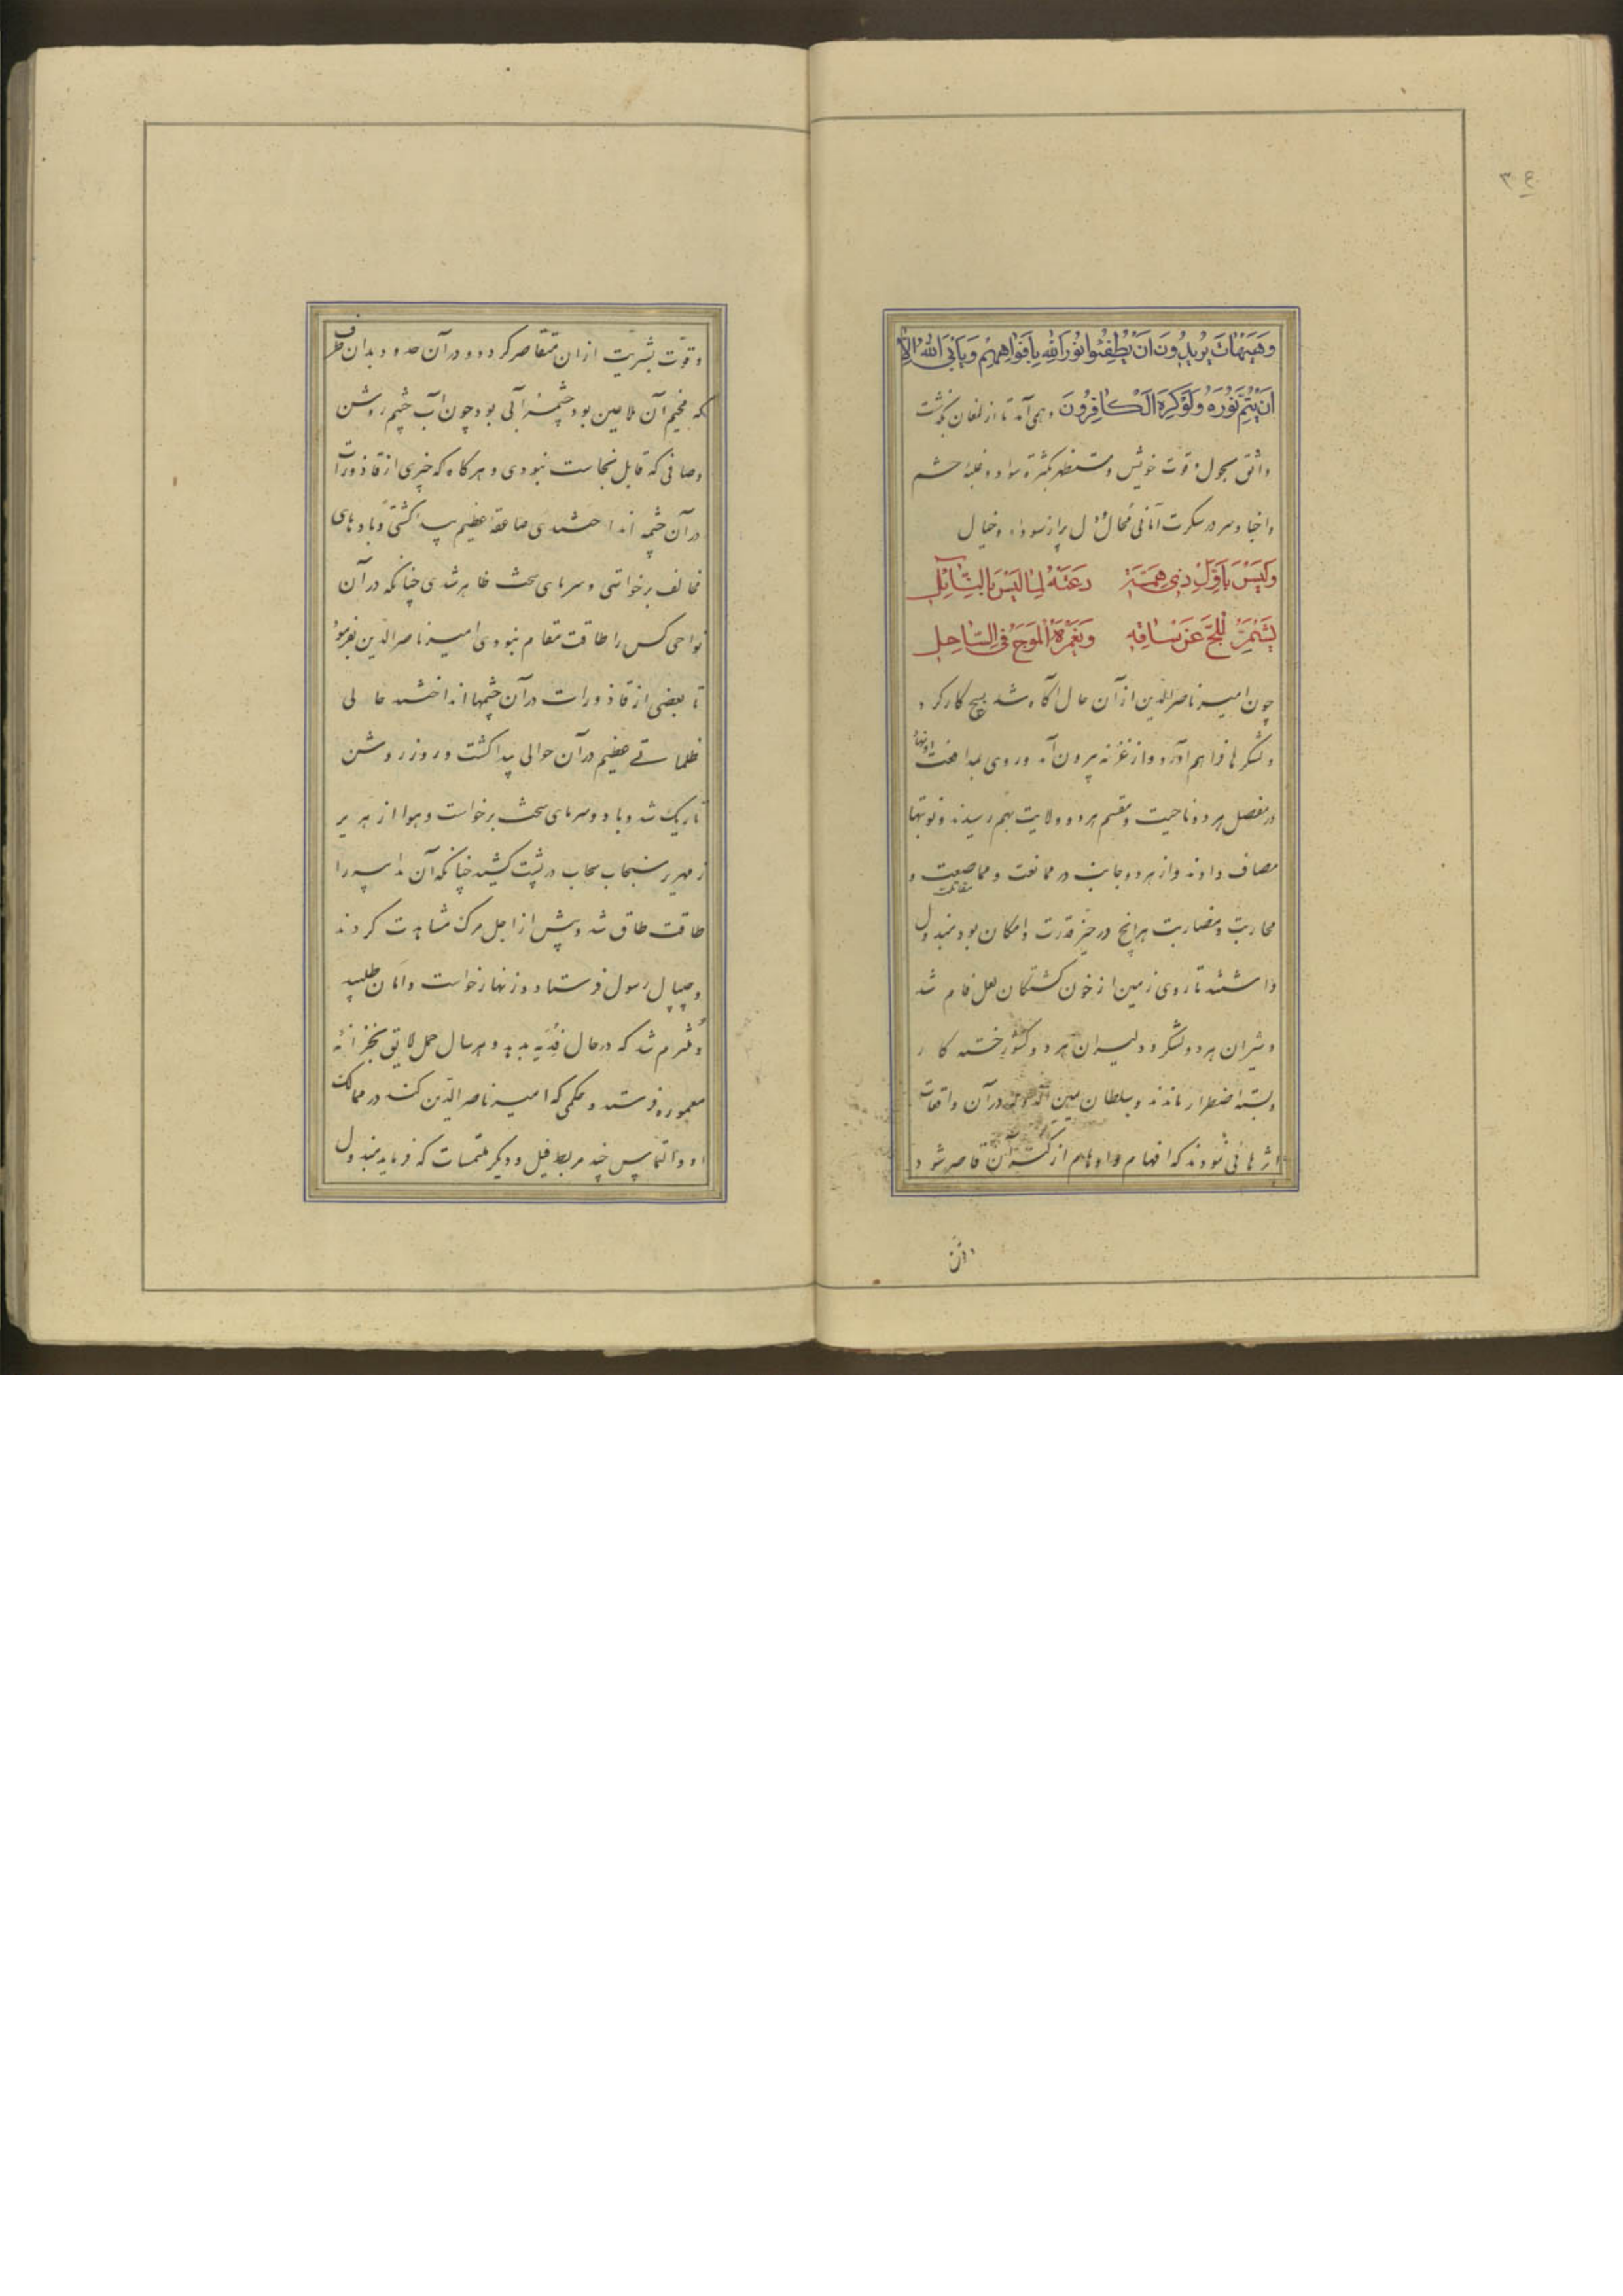 ۳۶
وَهَیْهَاتَ یُرِیدُونَ اَنْ یُطْفِئُوا نُورَ اللهِ بِاَفْوَاهِهِمْ وَیَأْبَی اللهُ اِلَّا
اَنْ یُتِمَّ نُورَهُ وَلَوْ کَرِهَ الْکَافِرُونَ و همی آمد تا از لمغان بگذشت
واثق بحول و قوت خویش و مستظهر بکثرة سواد و غلبهٔ حشم
و اخیا و سر در سکرت امانی محال و دل پر از سودا و خیال
وَلَیْسَ بِاَوَّلِ ذِی هِمَّةٍ دَعَتْهُ لِمَا لَیْسَ بِالنَّائِلِ
یُشَمِّرُ لِلُّجِّ عَنْ سَاقِهِ وَیَغْمُرُهُ الْمَوْجُ فِی السَّاحِلِ
چون امیر ناصرالدین از آن حال آگاه شد بسیج کار کرد
و لشکرها فراهم آورد و از غزنه بیرون آمد و روی بمدافعت او نهاد
در مفصل هر دو ناحیت و مقسم هر دو ولایت بهم رسیدند و نوبتها
مصاف دادند و از هر دو جانب در ممانعت و مماصعت و
محاربت و مضاربت هرانچ در حیز قدرت و امکان بود مبذول
داشتند تا روی زمین از خون کشتگان لعل فام شد
و شیران هر دو لشکر و دلیران هر دو کشور خسته کار
و بسته اضطرار ماندند و سلطان یمین الدوله در آن واقعات
اثرهائی نمودند که افهام و اوهام از کنه آن قاصر شود
وقوّت
وقوّت بشریت از ان متقاصر کردد و در آن حدود بدان طرف
که مخیم آن ملاعین بود چشمهٔ آبی بود چون آب چشم روشن
و صافی که قابل نجاست نبودی و هرکاه که چیزی از قاذورات
در آن چشمه انداختندی صاعقهٔ عظیم پیدا کشتی و بادهای
مخالف برخواستی و سرمای سخت ظاهر شدی چنانکه در آن
نواحی کس را طاقت مقام نبودی امیر ناصر الدین بفرمود
تا بعضی از قاذورات در آن چشمها انداختند حالی
ظلماتے عظیم در آن حوالی پیدا کشت و روز روشن
تاریک شد و باد و سرمای سخت برخواست و هوا از بر بر
زمهریر سنجاب سحاب در پشت کشید چنانکه آن مدابیر را
طاقت طاق شد و پیش از اجل مرک مشاهدت کردند
و جیپال رسول فرستاد و زنهار خواست و امان طلبید
و ملتزم شد که در حال فدیه بدهد و هر سال حمل لایق بخزانهٔ
معموره فرستد و حکمی که امیر ناصر الدین کند در ممالک
او و التماس چند مربط فیل و دیکر ملتمسات که فرماید مبذول